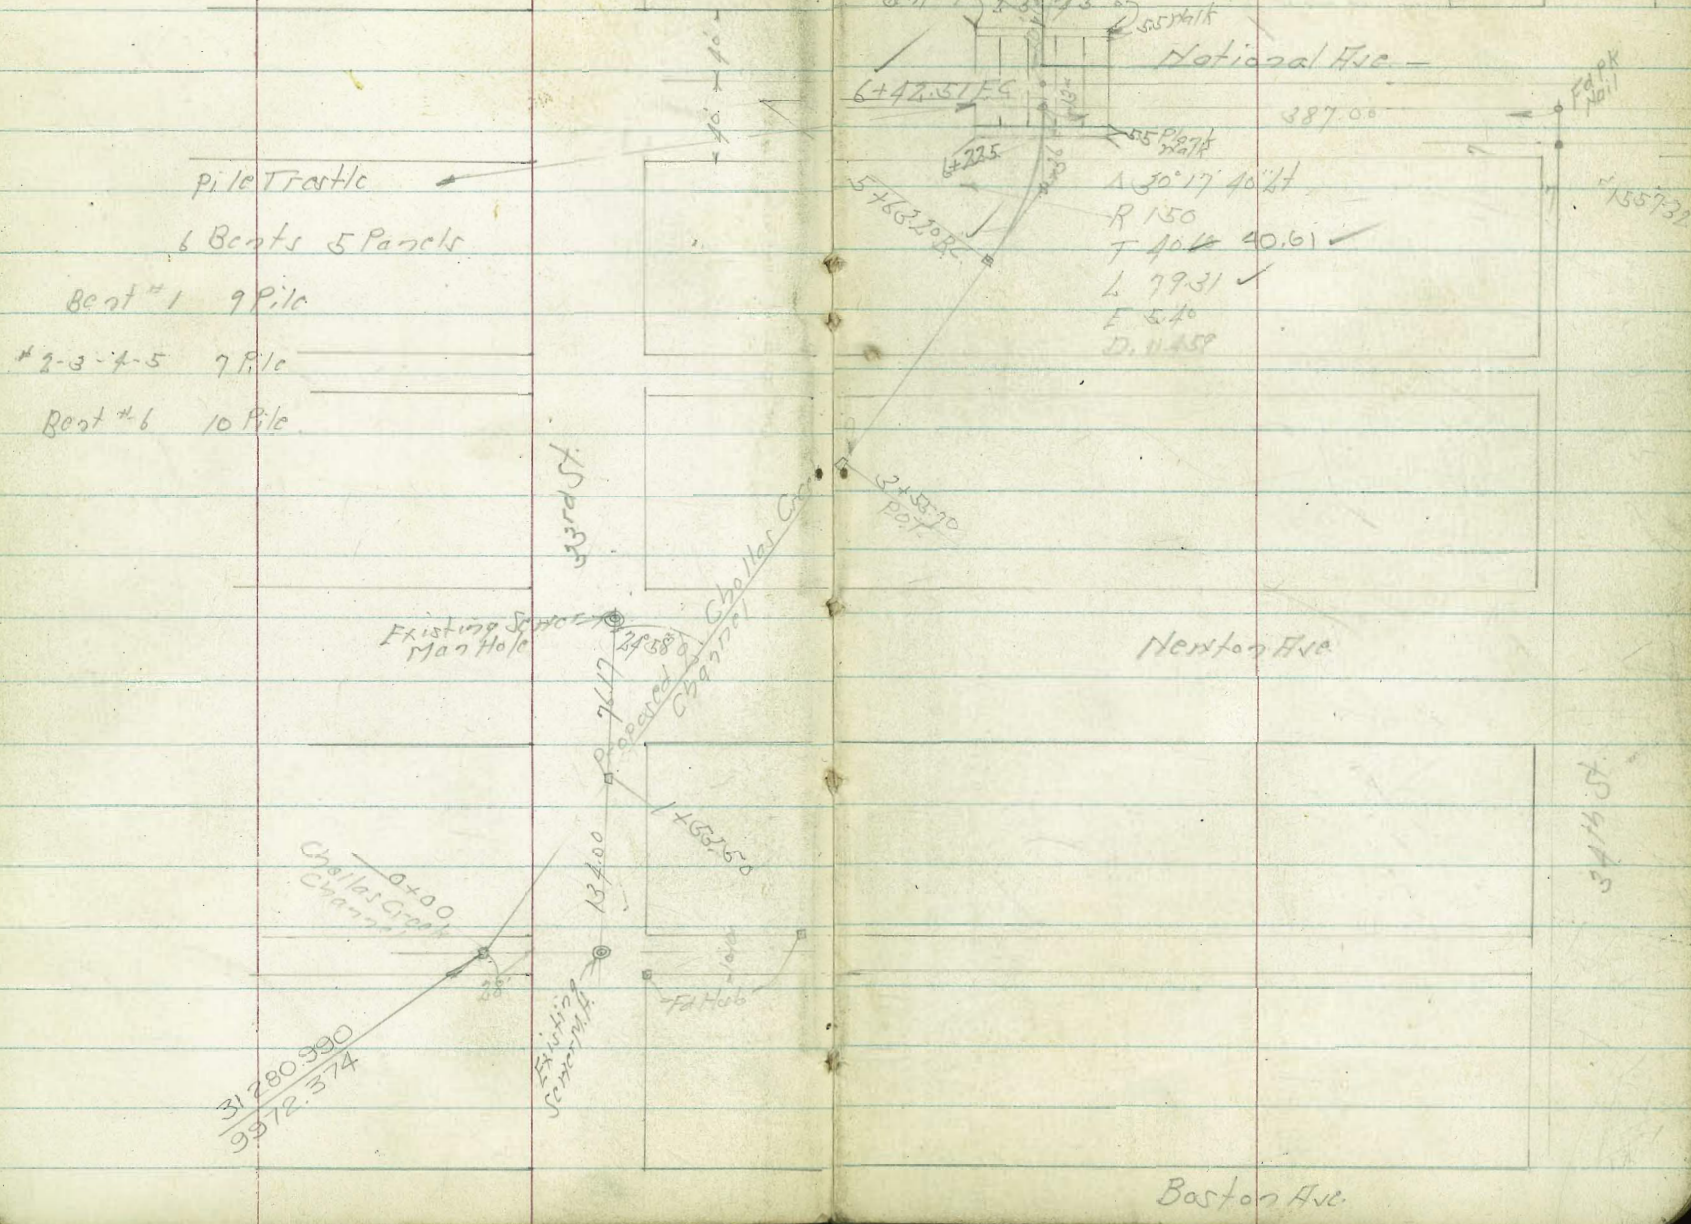 Pile Trestle
6 Bents 5 Panels
Bent #1 9 Pile
#2-3-4-5 7 Pile
Bent #6 10 Pile
40' 40'
33rd St.
Existing Sewer
Man Hole
76.17
Proposed Chollas Creek
Channel
1+53.50
134.00
0+00
Chollas Creek
Channel
28'
Existing
Sewer M.H.
Fd Hub
31280.990
9972.374
55 Walk
National Ave.
6+42.51 EC
387.00
Fd PK
Nail
55 Plank
Walk
6+225
5+63.20 BC
Δ 30° 17' 40" Lt
R 150
T 40.61 ✓
L 79.31 ✓
E 5.40
3+55.70
P.O.T.
Newton Ave.
34th St.
Boston Ave.